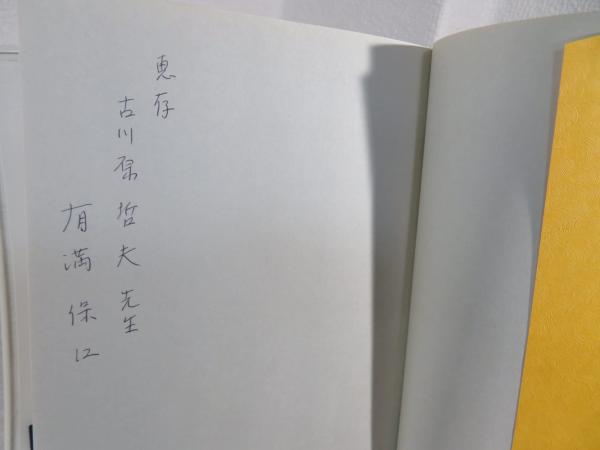 恵存
古川原哲夫先生
有満保江